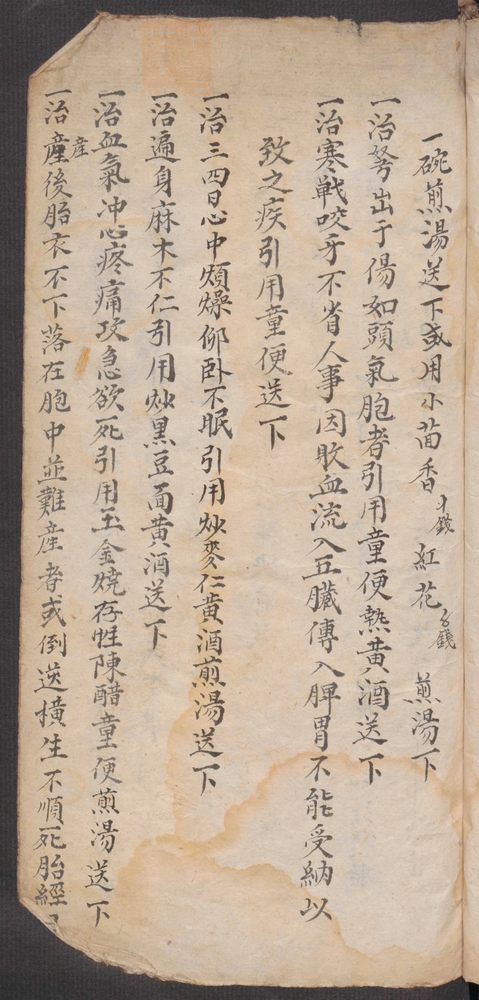 一碗煎湯送下或用小茴香 錢 紅花 錢 煎湯下
一治努出于傷如頭氣胞者引用童便熱黄酒送下
一治寒戦咬牙不省人事因敗血流入五臓傳入脾胃不能受納以
致之疾引用童便送下
一治三四日心中煩燥仰卧不眠引用炒麥仁黄酒煎湯送下
一治遍身麻木不仁引用炒黒豆面黄酒送下
一治血氣冲心疼痛攻急欲死引用玉金燒存性陳醋童便煎湯送下
一治產產後胎衣不下落在胞中並難產者或倒送橫生不順死胎經